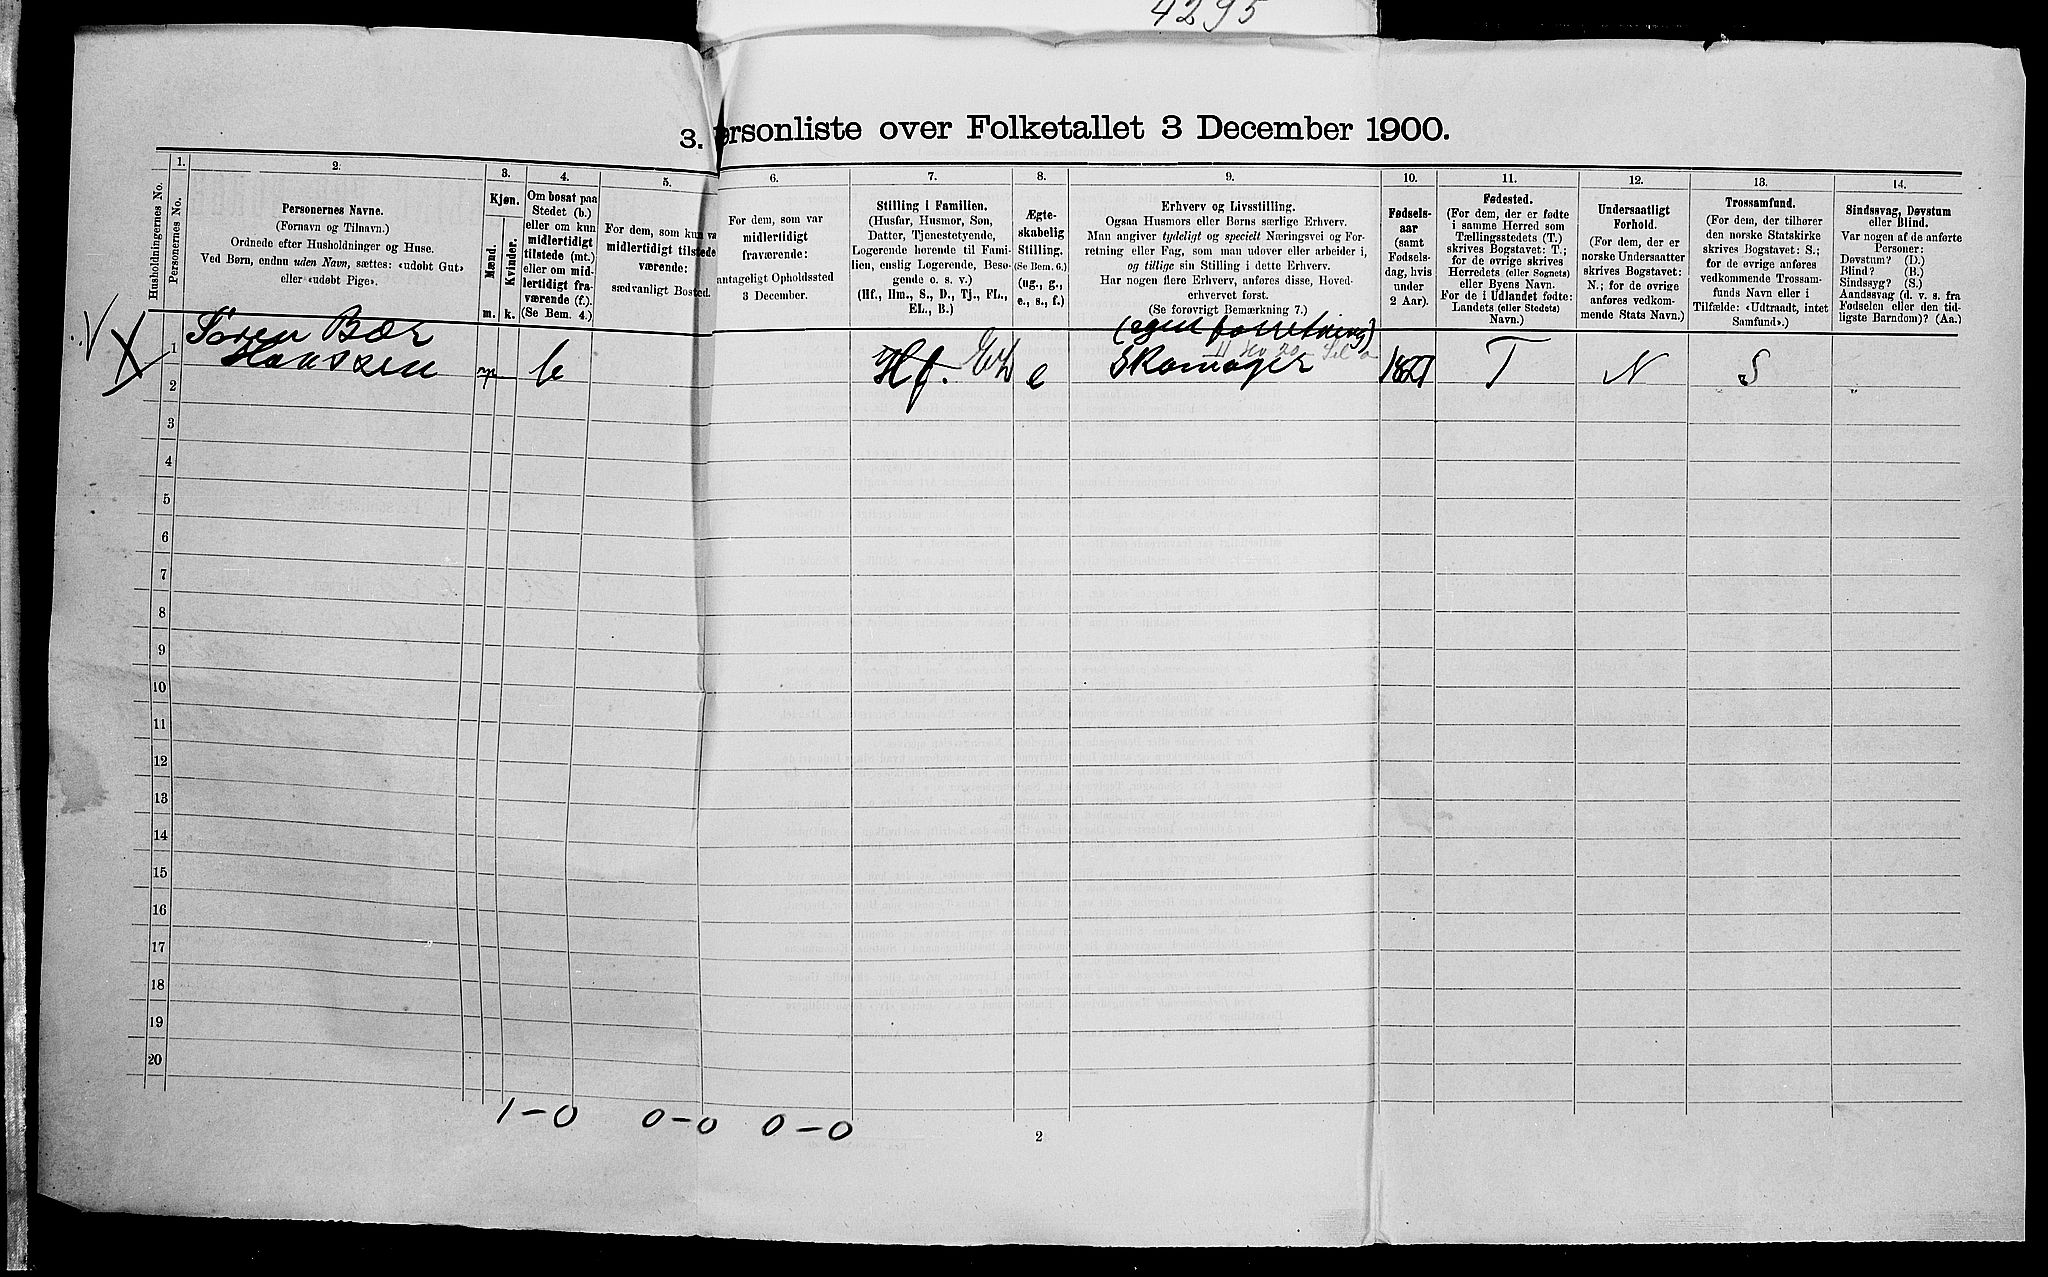 4295
3. Personliste over Folketallet 3 December 1900.
Husholdningernes No.
1.
Personernes No.
2.
Personernes Navne.
(Fornavn og Tilnavn.)
Ordnede efter Husholdninger og Huse.
Ved Børn, endnu uden Navn, sættes: «udøbt Gut»
eller «udøbt Pige».
3.
Kjøn.
Mænd.
Kvinder.
m.
k.
4.
Om bosat paa
Stedet (b.)
eller om kun
midlertidigt
tilstede (mt.)
eller om mid-
lertidigt fra-
værende (f.)
(Se Bem. 4.)
5.
For dem, som kun va
midlertidigt tilstede
værende:
sædvanligt Bosted.
6.
For dem, som var
midlertidigt
fraværende:
antageligt Opholdssted
3 December.
7.
Stilling i Familien.
(Husfar, Husmor, Søn,
Datter, Tjenestetyende,
Logerende hørende til Fami-
lien, enslig Logerende, Besø-
gende o. s. v.)
(Hf., Hm., S., D., Tj., FL.,
EL., B.)
8.
Ægte-
skabelig
Stilling.
(Se Bem. 6.)
(ug., g.,
e., s., f.)
9.
Erhverv og Livsstilling.
Ogsaa Husmors eller Børns særlige Erhverv.
Man angiver tydeligt og specielt Næringsvei og For-
retning eller Fag, som man udøver eller arbeider i,
og tillige sin Stilling i dette Erhverv.
Har nogen flere Erhverv, anføres disse, Hoved-
erhvervet først.
(Se forøvrigt Bemærkning 7.)
10.
Fødsels-
aar
(samt
Fødsels-
dag, hvis
under
2 Aar).
11.
Fødested.
(For dem, der er fødte
i samme Herred som
Tællingsstedets (T.)
skrives Bogstavet: T.;
for de øvrige skrives
Herredets (eller Sognets)
eller Byens Navn.
For de i Udlandet fødte:
Landets (eller Stedets)
Navn.)
12.
Undersaatligt
Forhold.
(For dem, der er
norske Undersaatter
skrives Bogstavet:
N.; for de øvrige
anføres vedkom-
mende Stats Navn.)
13.
Trossamfund.
(For dem, der tilhører
den norske Statskirke
skrives Bogstavet: S.;
for de øvrige anføres
vedkommende Trossam-
funds Navn eller i
Tilfælde: «Udtraadt, intet
Samfund».)
14.
Sindssvag, Døvstum
eller Blind.
Var nogen af de anførte
Personer:
Døvstum? (D.)
Blind? (B.)
Sindssyg? (S.)
Aandssvag (d. v. s. fra
Fødselen eller den tid-
ligste Barndom)? (Aa.)
1 Søren Bær (egen forretning)
Hanssen m b Hf. e Skomager 1827 T N S
2
3
4
5
6
7
8
9
10
11
12
13
14
15
16
17
18
19
20
1-0 0-0 0-0
2